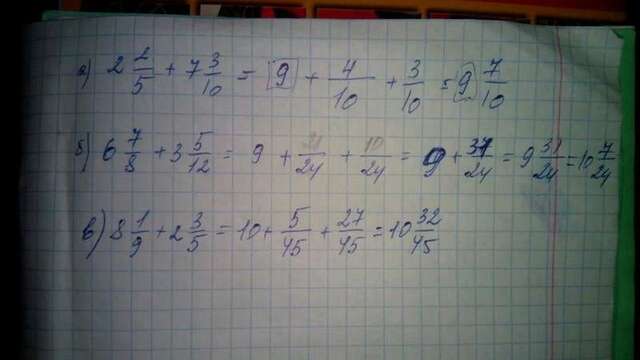 а) 2 2/5 + 7 3/10 = 9 + 4/10 + 3/10 = 9 7/10
б) 6 7/8 + 3 5/12 = 9 + 21/24 + 10/24 = 9 + 31/24 = 9 31/24 = 10 7/24
в) 8 1/9 + 2 3/5 = 10 + 5/45 + 27/45 = 10 32/45